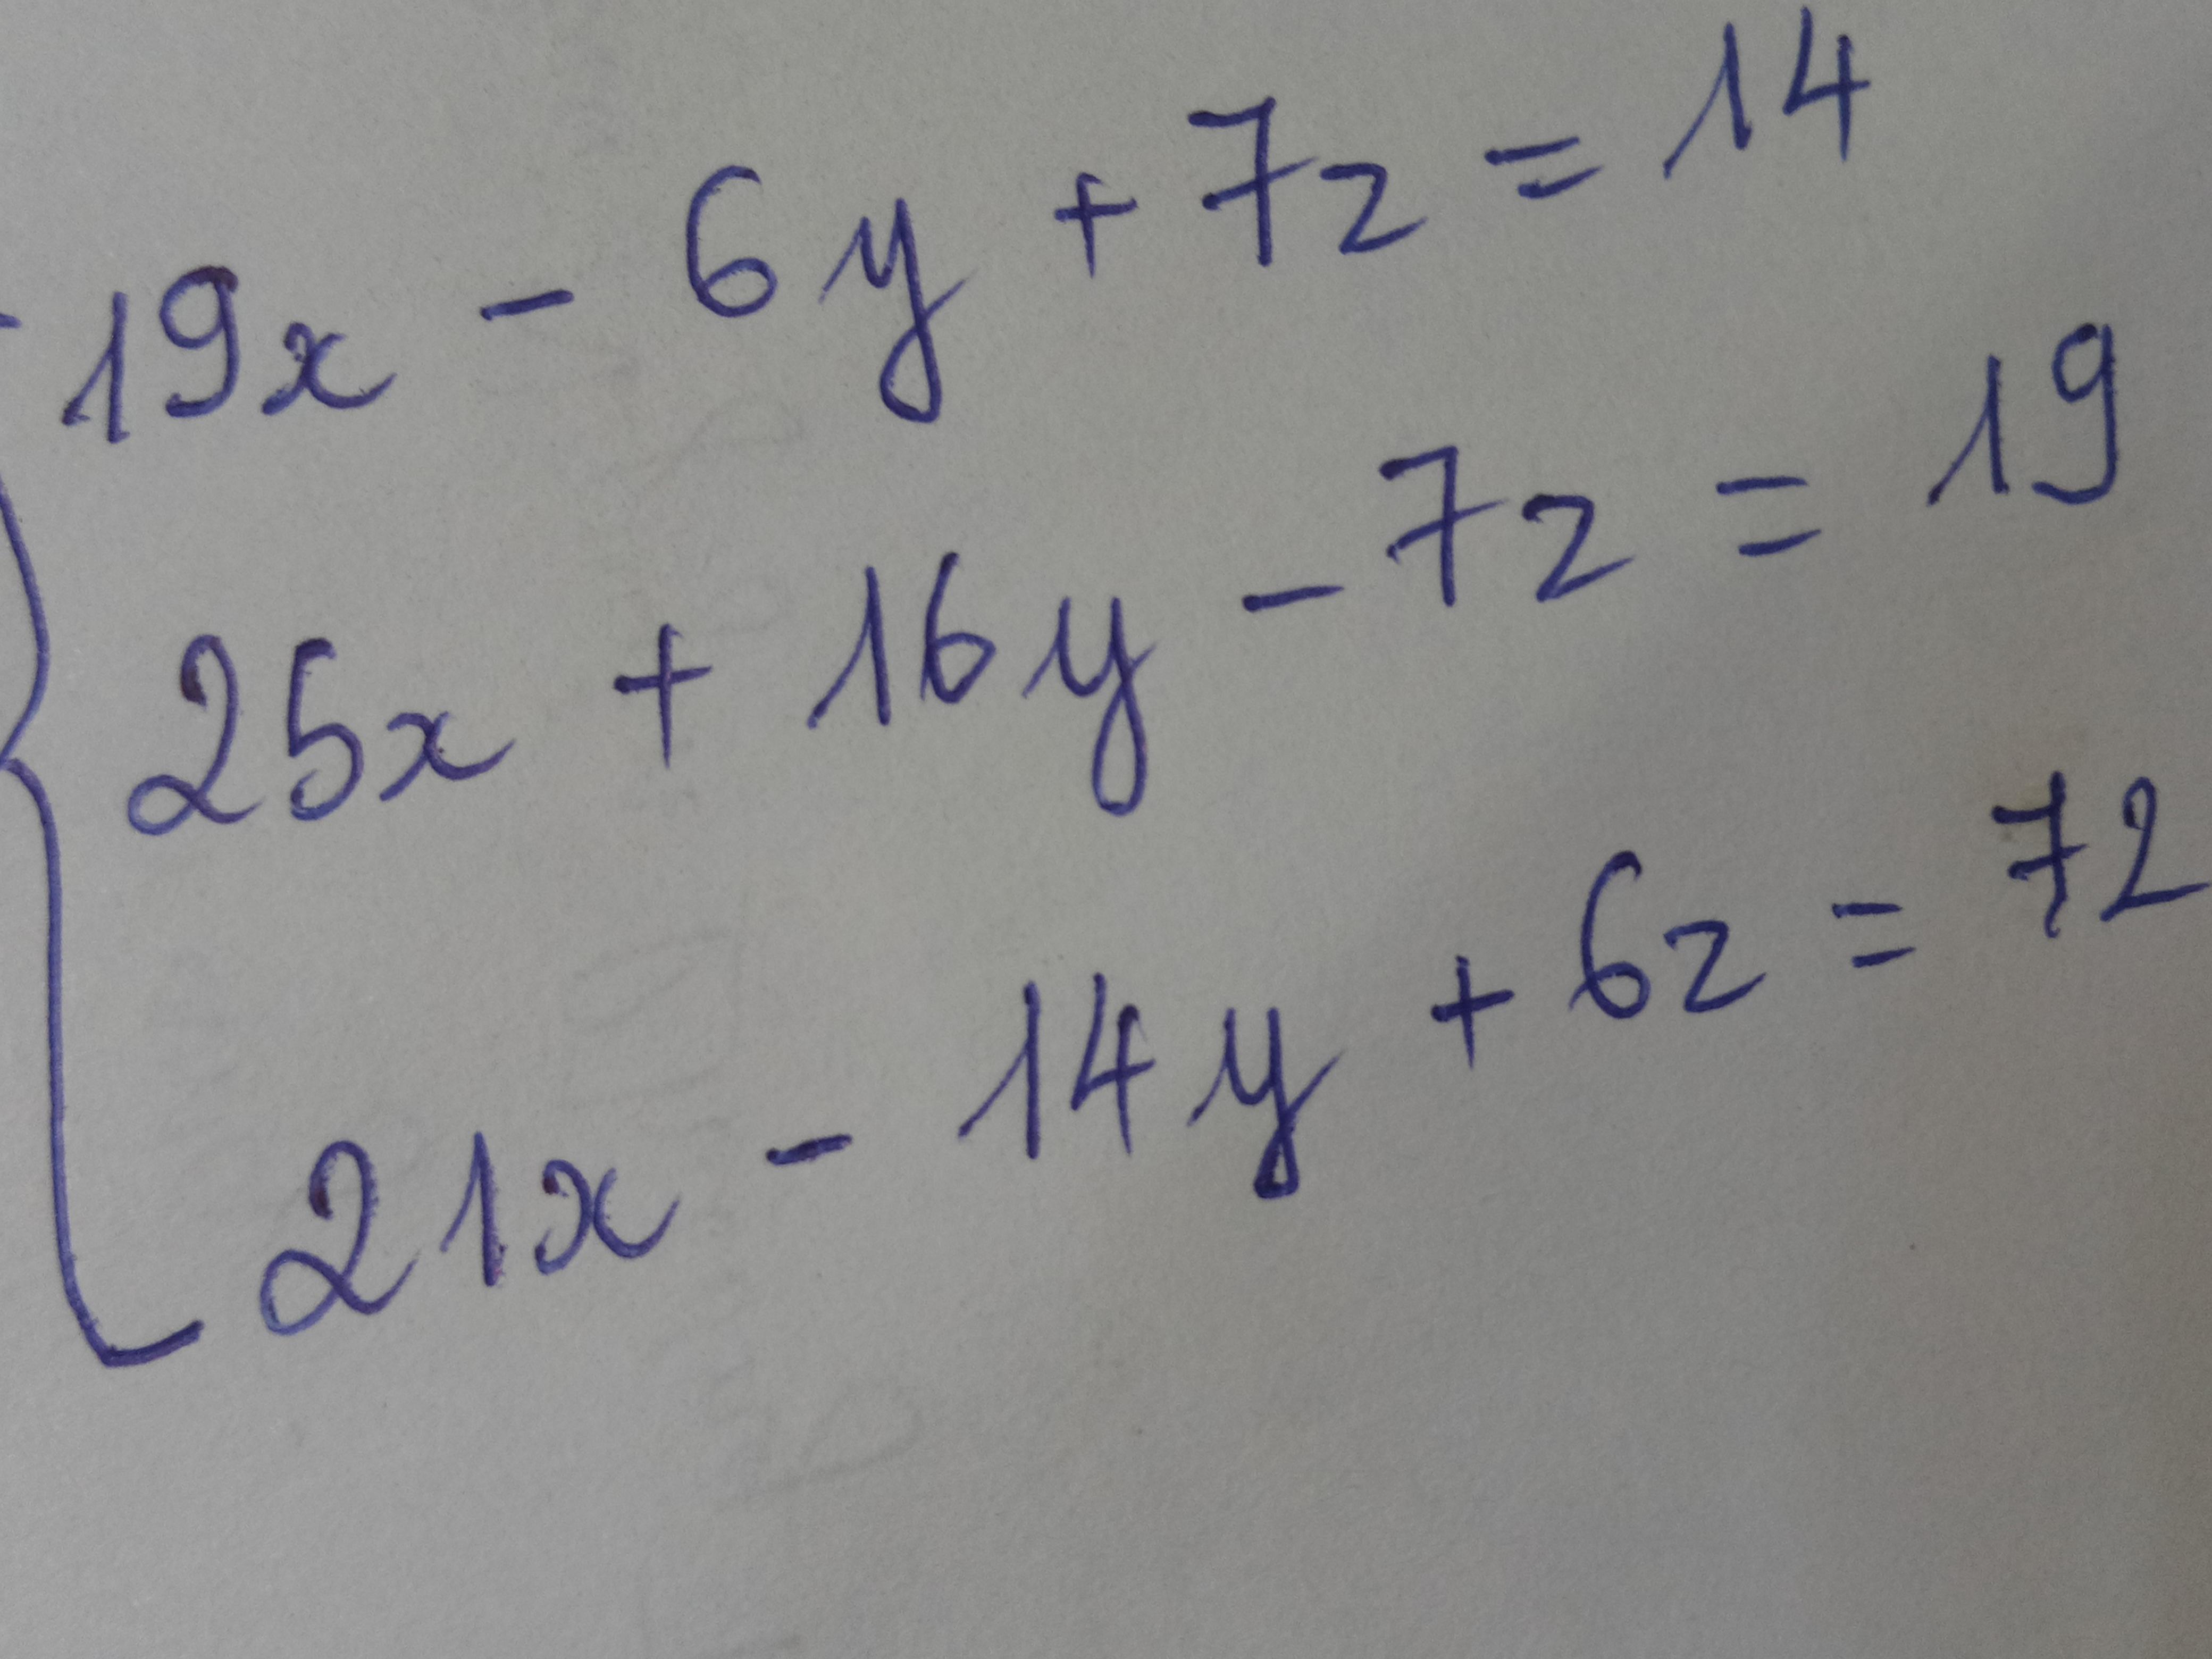 19x - 6y + 7z = 14
25x + 16y - 7z = 19
21x - 14y + 6z = 72